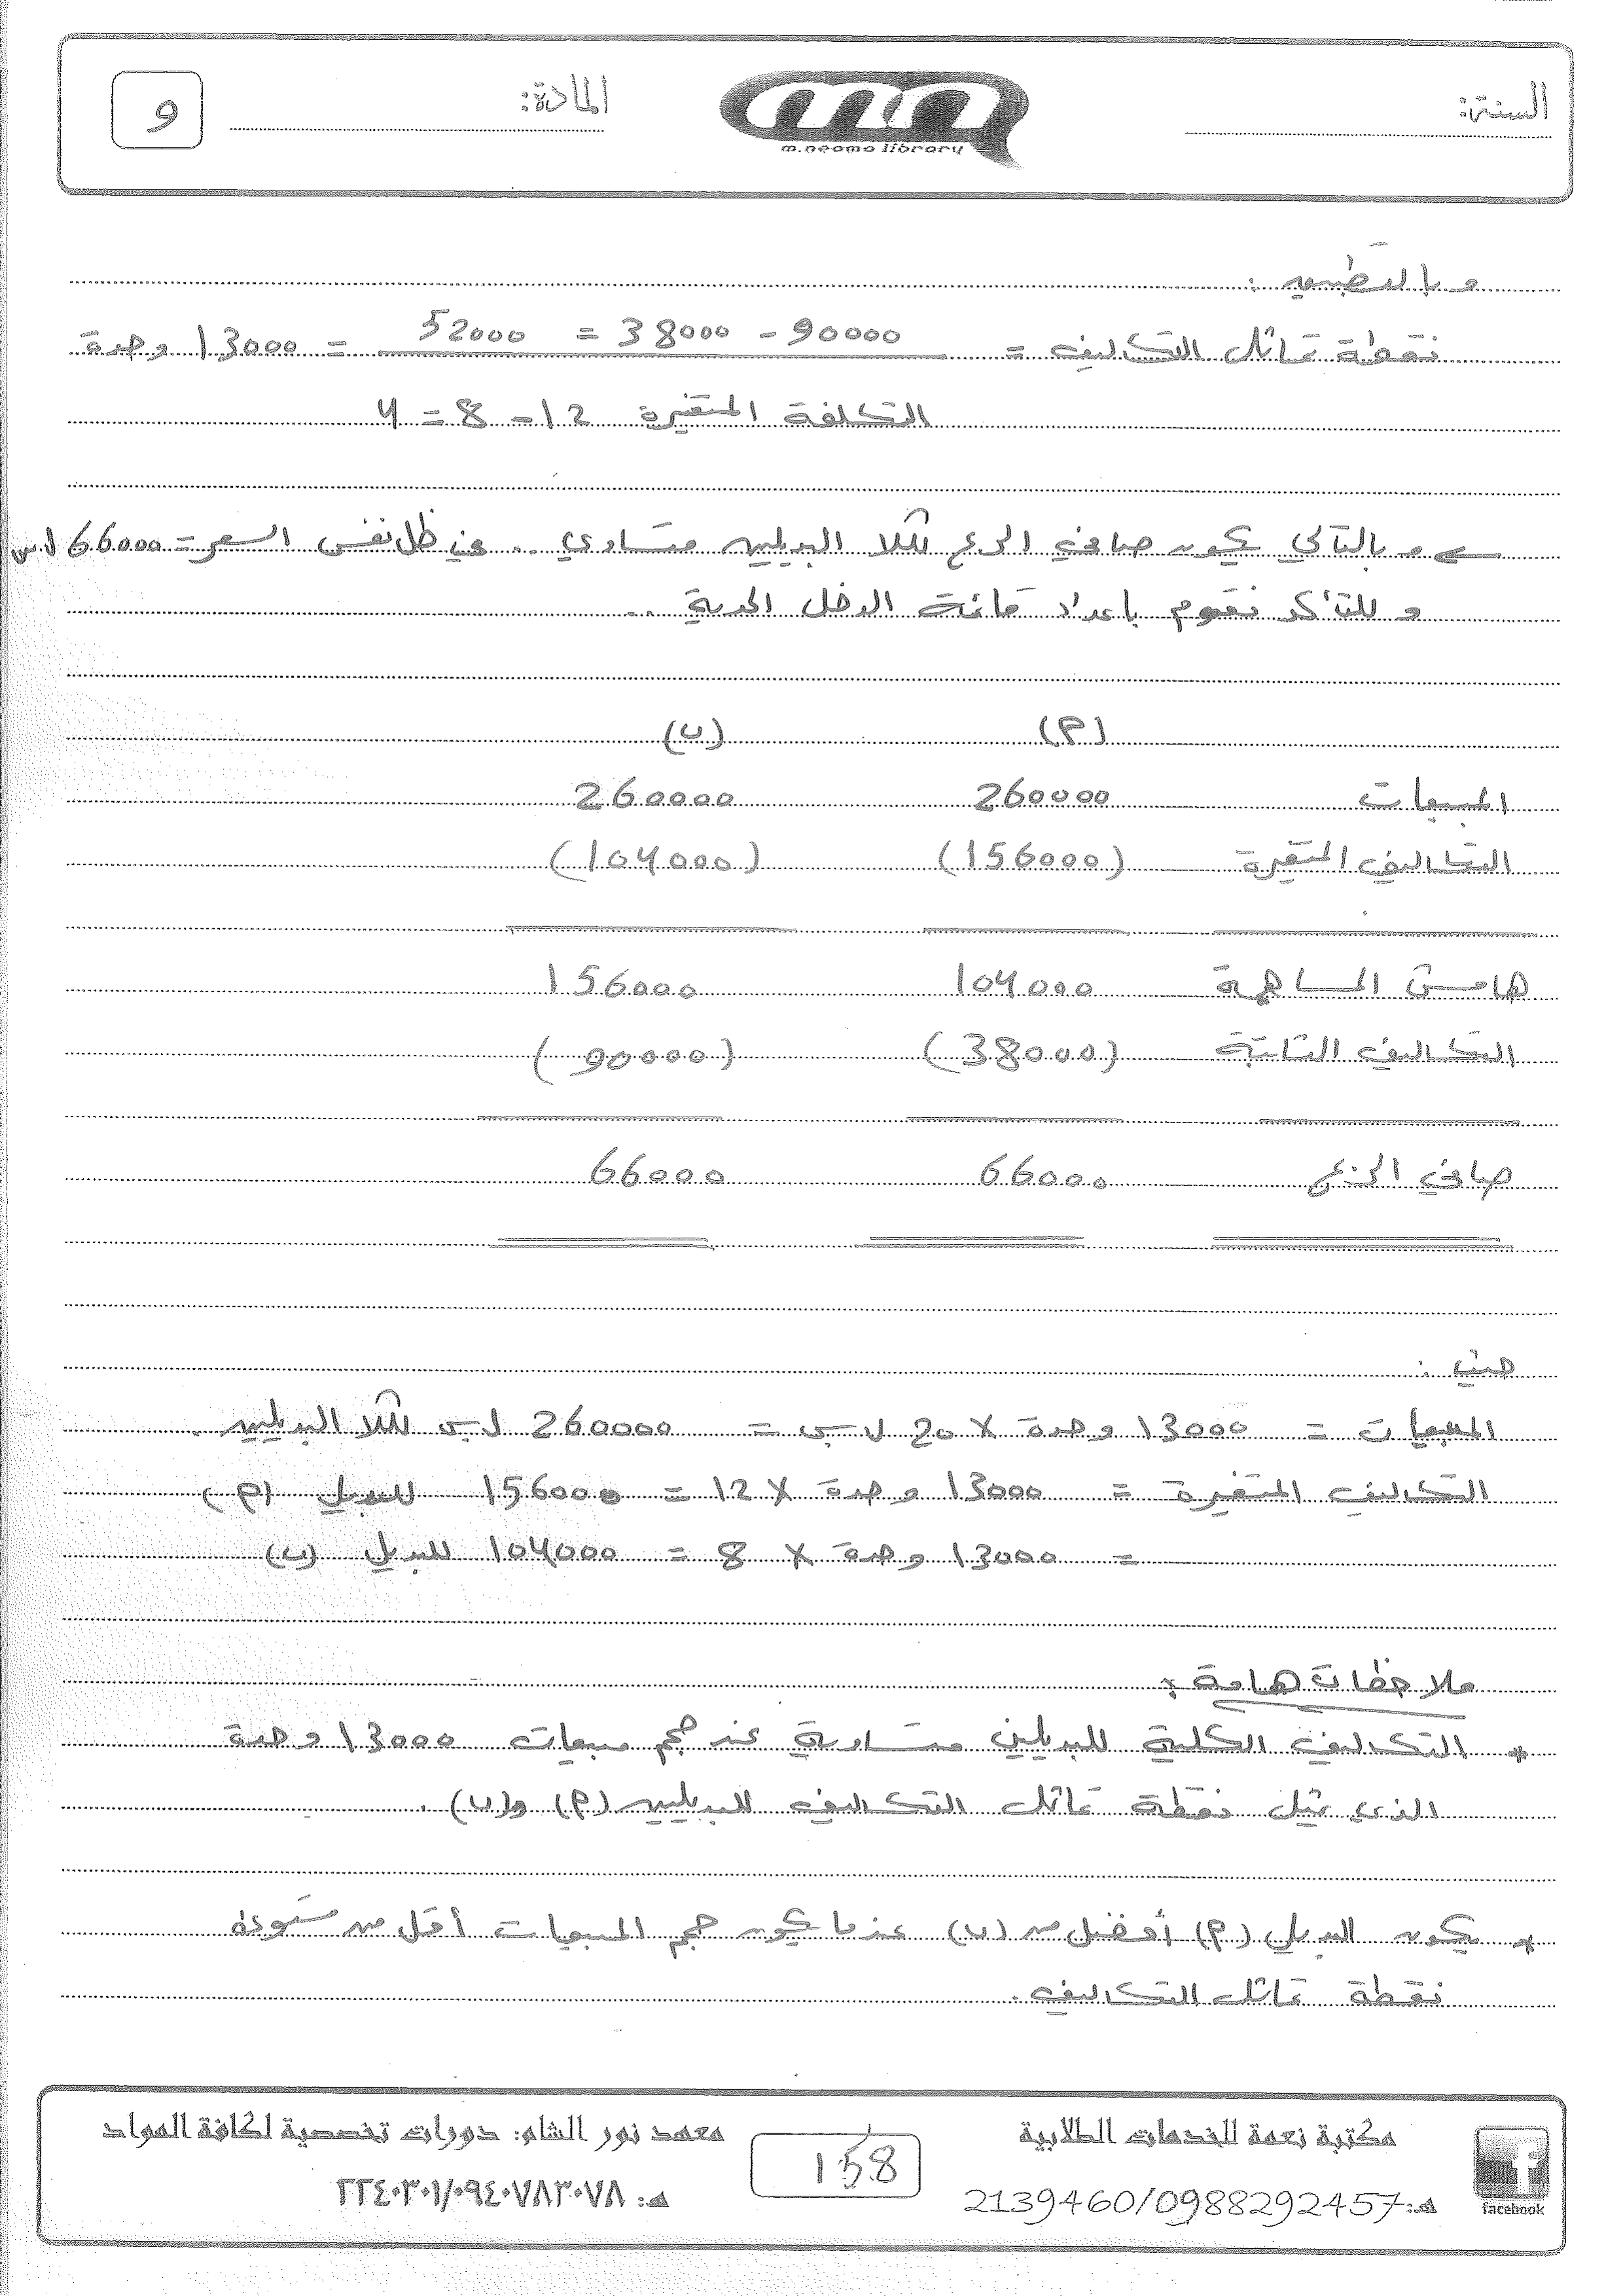 السنة:
m.neama library
المادة:
9
وبالتطبيق :
نقطة تماثل التكاليف = 90000 - 38000 = 52000 = 13000 وحدة
التكلفة المتغيرة 12 - 8 = 4
← وبالتالي يكون صافي الربح لكلا البديلين متساوي .. في ظل نفس السعر = 66000 ل.س
وللتأكد نقوم باعداد قائمة الدخل الحدية ..
(م) (ب)
المبيعات 260000 260000
التكاليف المتغيرة (156000) (104000)
هامش المساهمة 104000 156000
التكاليف الثابتة (38000) (90000)
صافي الربح 66000 66000
حيث :
المبيعات = 13000 وحدة × 20 ل.س = 260000 ل.س لكلا البديلين .
التكاليف المتغيرة = 13000 وحدة × 12 = 156000 للبديل (م)
= 13000 وحدة × 8 = 104000 للبديل (ب)
ملاحظات هامة :
* التكاليف الكلية للبديلين متساوية عند حجم مبيعات 13000 وحدة
الذي يمثل نقطة تماثل التكاليف للبديلين (م) و(ب) .
* يكون البديل (م) أفضل من (ب) عندما يكون حجم المبيعات أقل من مستوى
نقطة تماثل التكاليف .
facebook
مكتبة نعمة للخدمات الطلابية
هـ: 2139460/0988292457
158
معهد نور الشام: دورات تخصصية لكافة المواد
هـ: ٢٢٤٠٣٠١/٠٩٤٠٧٨٣٠٧٨